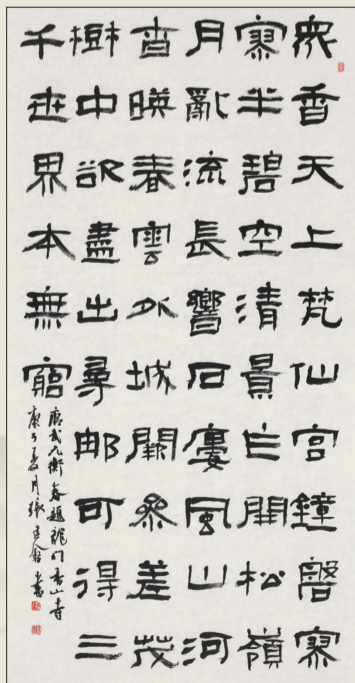 眾香天上梵仙宫鐘磬寥
寥半碧空清景乍開松嶺
月亂流長響石廔風山河
杳暎春雲外城闕參差茂
樹中欲盡出尋那可得三
千世界本無窮
唐武元衡春題龍門香山寺
庚子夏月張建會書